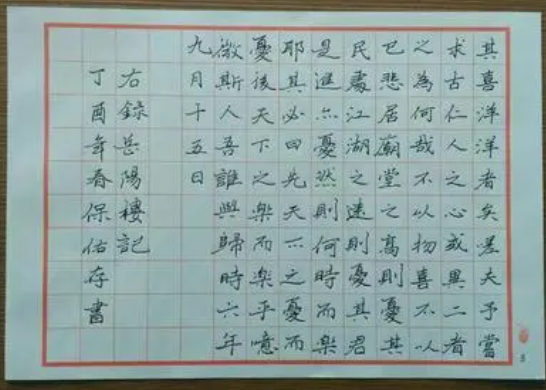 其喜洋洋者矣嗟夫予嘗
求古仁人之心或異二者
之為何哉不以物喜不以
已悲居廟堂之高則憂其
民處江湖之遠則憂其君
是進亦憂然則何時而樂
耶其必曰先天下之憂而
憂後天下之樂而樂乎噫
微斯人吾誰與歸時六年
九月十五日
右錄岳陽樓記
丁酉年春保佑存書